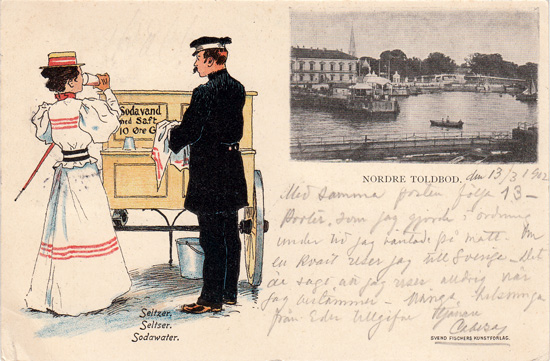 Sodavand
med Saft
10 Øre G
Seltzer.
Seltser.
Sodawater.
NORDRE TOLDBOD.
den 13/3 1902
Med samma posten följa 13-
som jag gjorde i ordning
under tid jag väntade på mått. Om
en kvart reser jag till Sverge. Det
är sagt, att jag reser, aldrig när
jag Många helsninga
från Eder tillgifne
SVEND FISCHERS KUNSTFORLAG.